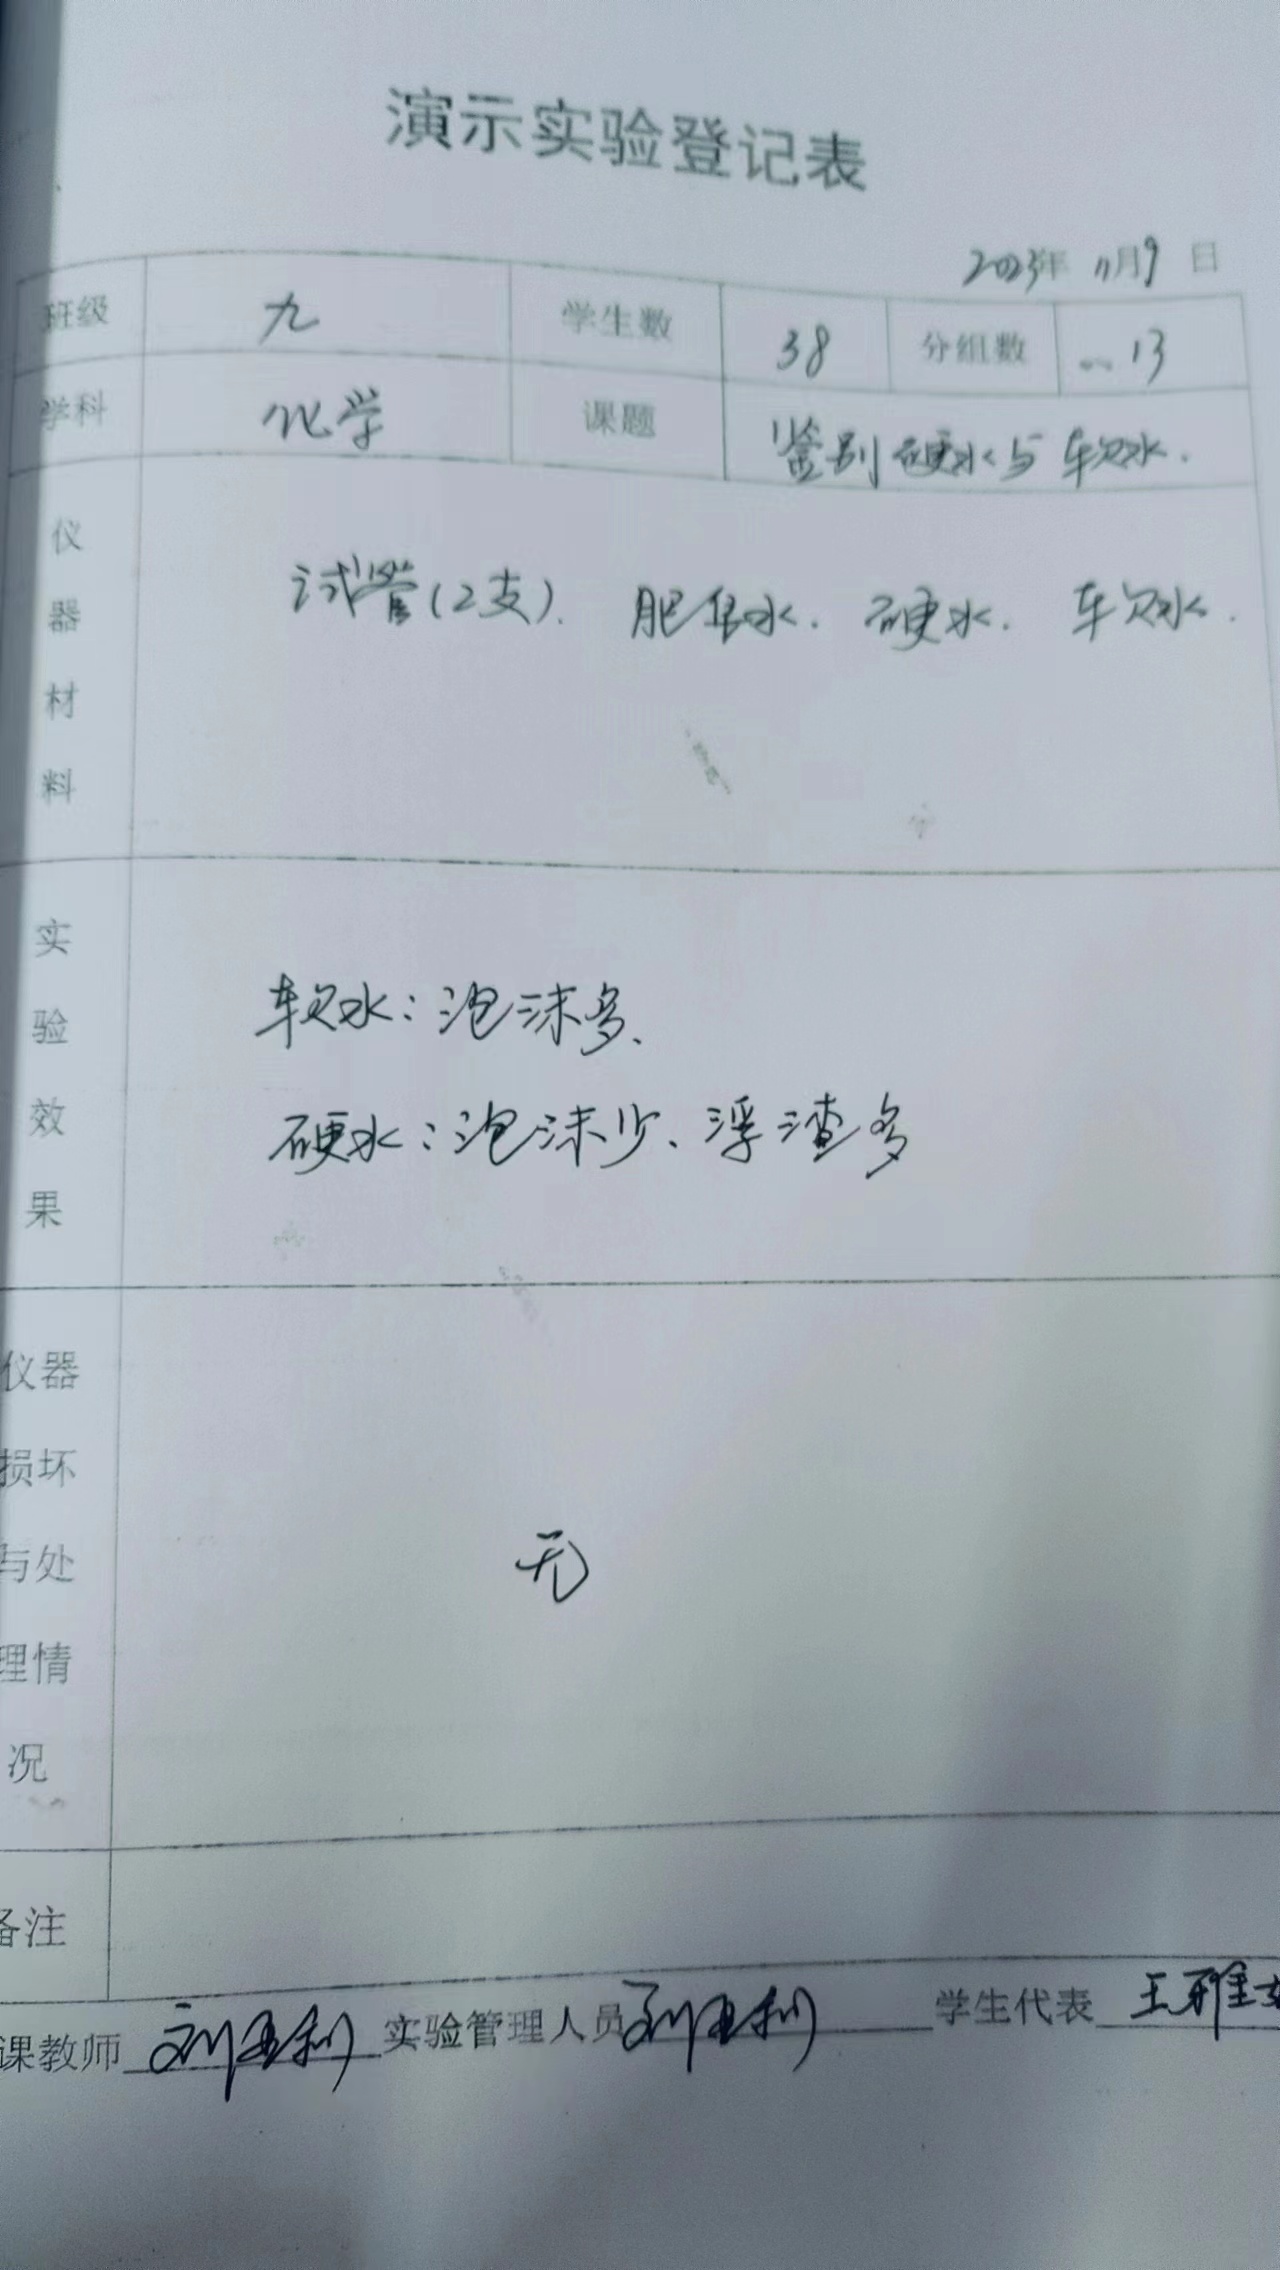 演示实验登记表
2023年 11月9日
班级 九 学生数 38 分组数 13
学科 化学 课题 鉴别硬水与软水.
仪器材料 试管(2支). 肥皂水. 硬水. 软水.
实验效果
软水:泡沫多、
硬水:泡沫少、浮渣多
仪器损坏与处理情况 无
备注
课教师 实验管理人员 学生代表 王雅